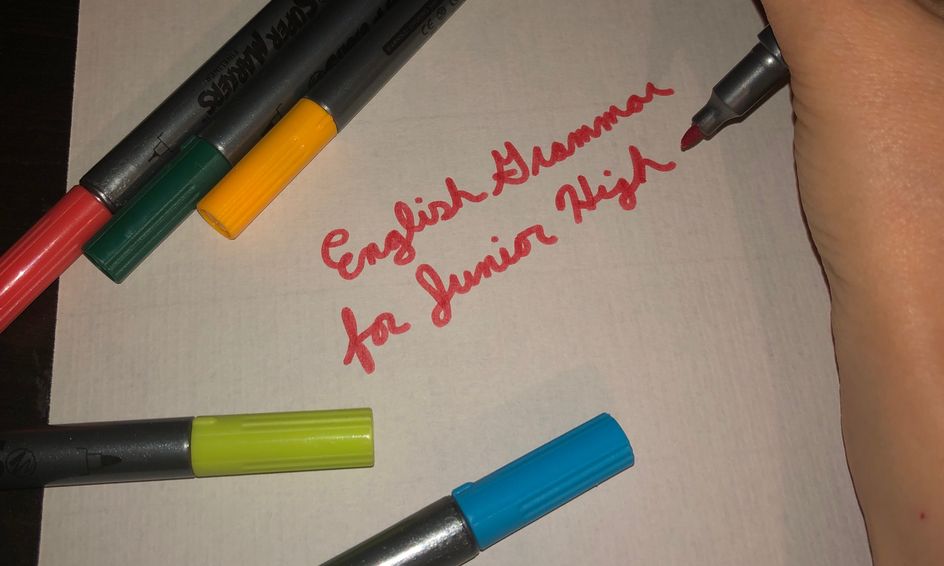 SUPER MARKERS
English Grammar
for Junior High